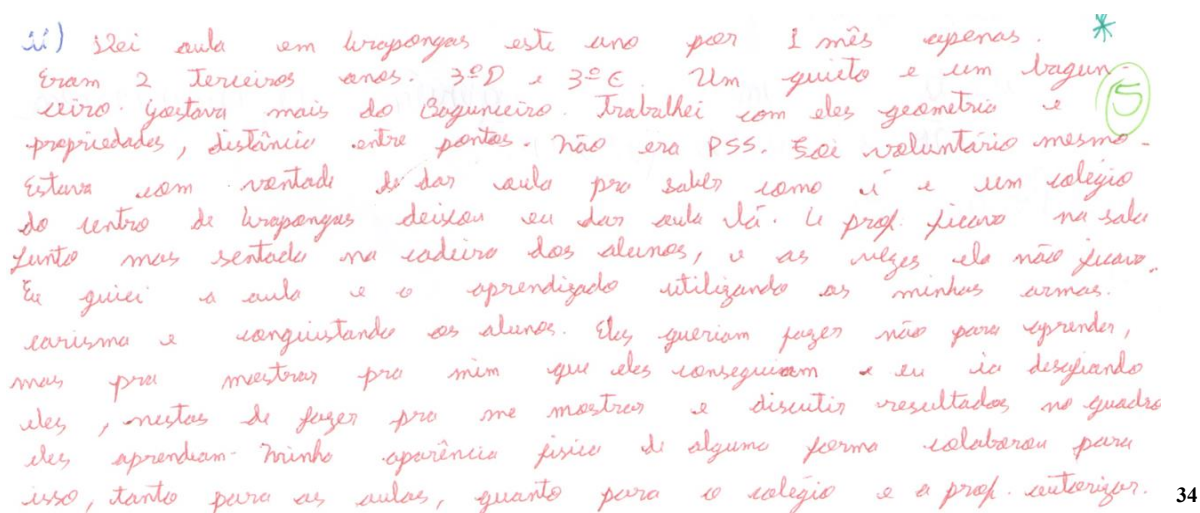 ii) Dei aula em Arapongas este ano por 1 mês apenas. *
Eram 2 terceiros anos. 3º D e 3º E. Um quieto e um bagun-
ceiro. Gostava mais do Bagunceiro. Trabalhei com eles geometria e 5
propriedades, distância entre pontos. Não era PSS. Foi voluntário mesmo.
Estava com vontade de dar aula pra saber como é e um colégio
do centro de Arapongas deixou eu dar aula lá. A prof. ficava na sala
junto mas sentada na cadeira dos alunos, e as vezes ela não ficava.
Eu guiei a aula e o aprendizado utilizando as minhas armas.
carisma e conquistando os alunos. Eles queriam fazer não para aprender,
mas pra mostrar pra mim que eles conseguiam e eu ia desafiando
eles, nestas de fazer pra me mostrar e discutir resultados no quadro
eles aprendiam. Minha aparência física de alguma forma colaborou para
isso, tanto para as aulas, quanto para o colégio e a prof. autorizar.
34